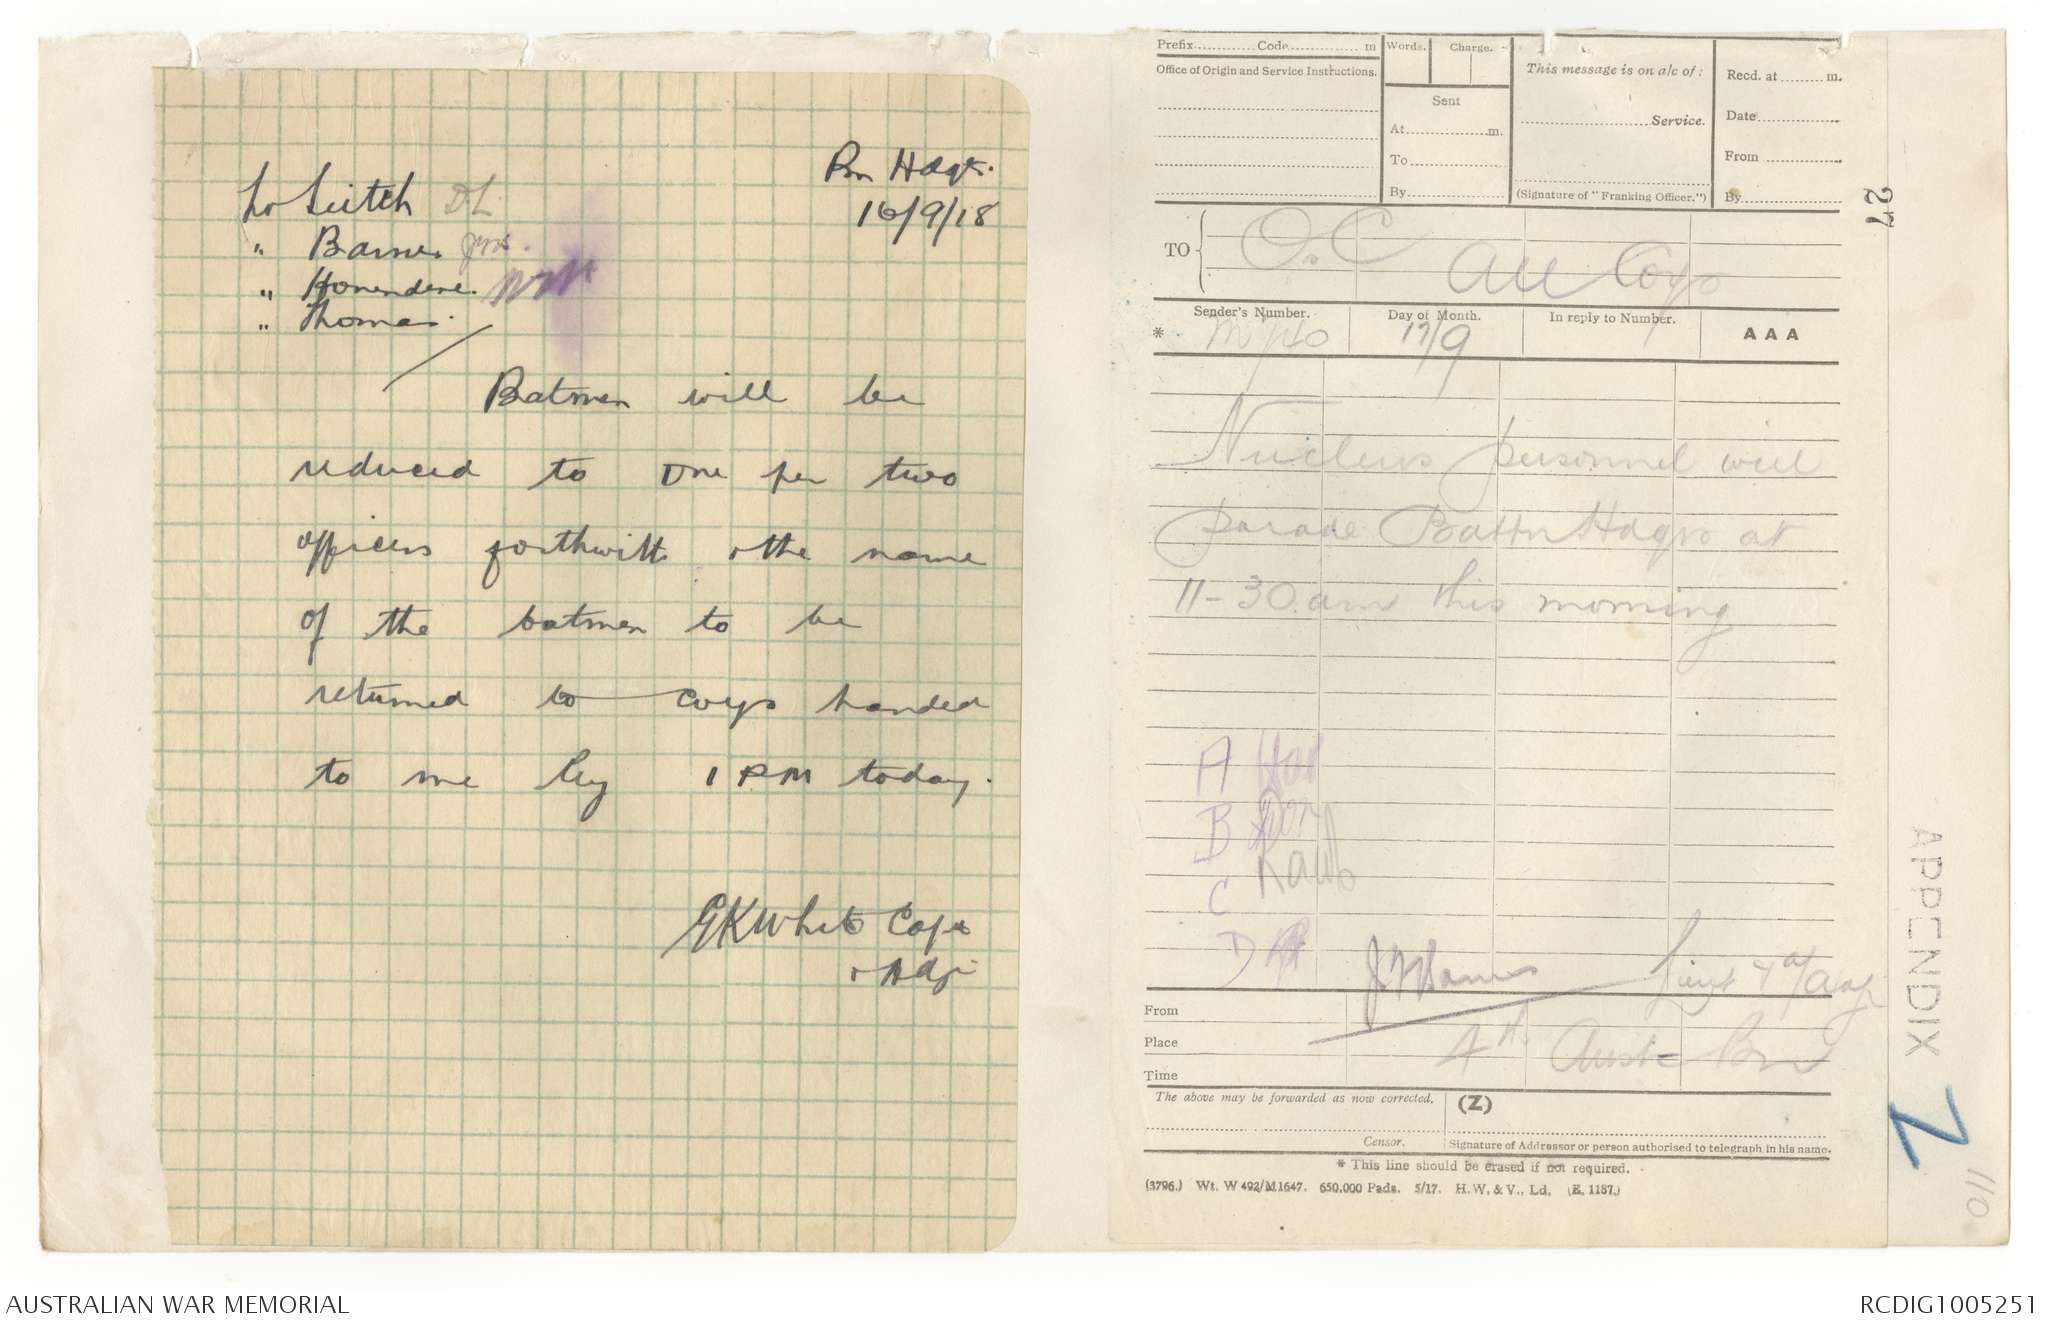 Bn Hdqts.
16/9/18
Lt Leitch DL
" Barnes
" Honendene.
" Thomas.
Batmen will be
reduced to one per two
officers forthwith & the name
of the batmen to be
returned to coys handed
to me by 1 PM today.
EKWhite Capt
& Adjt
Prefix Code m
Words. Charge.
This message is on a/c of:
Recd. at m.
Office of Origin and Service Instructions.
Sent
At m.
To
By
Service.
(Signature of "Franking Officer.")
Date
From
By
27
TO { O.C
All Coys
Sender's Number. Day of Month. In reply to Number. AAA
* 17/9
Nucleus personnel will
parade Battn Hdqrs at
11-30.am this morning
A
B
C
D
Lieut
4th Aust Bn
From
Place
Time
The above may be forwarded as now corrected. (Z)
Censor. Signature of Addressor or person authorised to telegraph in his name.
* This line should be erased if not required.
(3796.) Wt. W 492/M1647. 650,000 Pads. 5/17. H.W.&V., Ld. (E. 1187.)
APPENDIX Z
110
AUSTRALIAN WAR MEMORIAL
RCDIG1005251